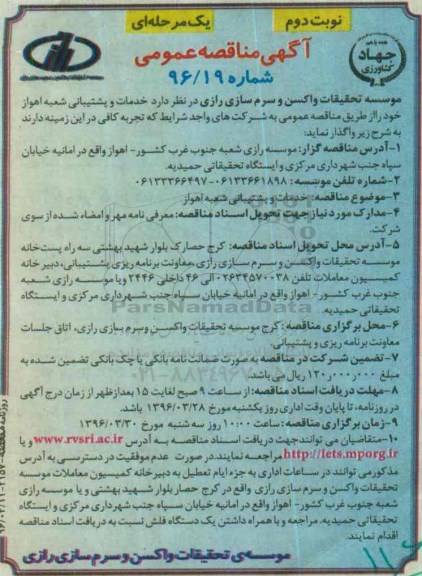 نوبت دوم
یک مرحله‌ای
جهاد
کشاورزی
آگهی مناقصه عمومی
شماره ۹۶/۱۹
موسسه تحقیقات واکسن و سرم سازی رازی در نظر دارد خدمات و پشتیبانی شعبه اهواز
خود را از طریق مناقصه عمومی به شرکت های واجد شرایط که تجربه کافی در این زمینه دارند
به شرح زیر واگذار نماید:
۱-آدرس مناقصه گزار: موسسه رازی شعبه جنوب غرب کشور- اهواز واقع در امانیه خیابان
سپاه جنب شهرداری مرکزی و ایستگاه تحقیقاتی حمیدیه.
۲-شماره تلفن موسسه: ۰۶۱۳۳۶۶۱۸۹۸-۰۶۱۳۳۳۶۶۴۹۷
۳-موضوع مناقصه: خدمات و پشتیبانی شعبه اهواز
۴-مدارک مورد نیاز جهت تحویل اسناد مناقصه: معرفی نامه مهر و امضاء شده از سوی
شرکت.
۵-آدرس محل تحویل اسناد مناقصه: کرج حصارک بلوار شهید بهشتی سه راه پست‌خانه
موسسه تحقیقات واکسن و سرم سازی رازی، معاونت برنامه ریزی پشتیبانی، دبیر خانه
کمیسیون معاملات تلفن ۰۲۶۳۴۵۷۰۰۳۸-الی ۴۶ داخلی ۲۴۴۶ و یا موسسه رازی شعبه
جنوب غرب کشور- اهواز واقع در امانیه خیابان سپاه جنب شهرداری مرکزی و ایستگاه
تحقیقاتی حمیدیه.
ParsNamadData
۶-محل برگزاری مناقصه: کرج موسسه تحقیقات واکسن وسرم سازی رازی، اتاق جلسات
معاونت برنامه ریزی و پشتیبانی.
۷-تضمین شرکت در مناقصه به صورت ضمانت نامه بانکی یا چک بانکی تضمین شده به
مبلغ ۱۲۰,۰۰۰,۰۰۰ ریال می باشد.
۰۲۱-۸۸۳۴۹۶۷۰
۸-مهلت دریافت اسناد مناقصه: از ساعت ۹ صبح لغایت ۱۵ بعدازظهر از زمان درج آگهی
در روزنامه، تا پایان وقت اداری روز یکشنبه مورخ ۱۳۹۶/۰۳/۲۸ باشد.
۹-زمان برگزاری مناقصه: ساعت ۱۰:۰۰ روز سه شنبه مورخ ۱۳۹۶/۰۳/۳۰
۱۰-متقاضیان می توانند جهت دریافت اسناد مناقصه به آدرس www.rvsri.ac.ir و یا
http://iets.mporg.ir مراجعه نمایند. در صورت عدم موفقیت در دسترسی به آدرس
مذکور می توانند در ساعات اداری به جزء ایام تعطیل به دبیرخانه کمیسیون معاملات موسسه
تحقیقات واکسن و سرم سازی رازی واقع در کرج حصار بلوار شهید بهشتی و یا موسسه رازی
شعبه جنوب غرب کشور- اهواز واقع در امانیه خیابان سپاه جنب شهرداری مرکزی و ایستگاه
تحقیقاتی حمیدیه، مراجعه و با همراه داشتن یک دستگاه فلش نسبت به دریافت اسناد مناقصه
اقدام نمایند.
موسسه‌ی تحقیقات واکسن و سرم سازی رازی